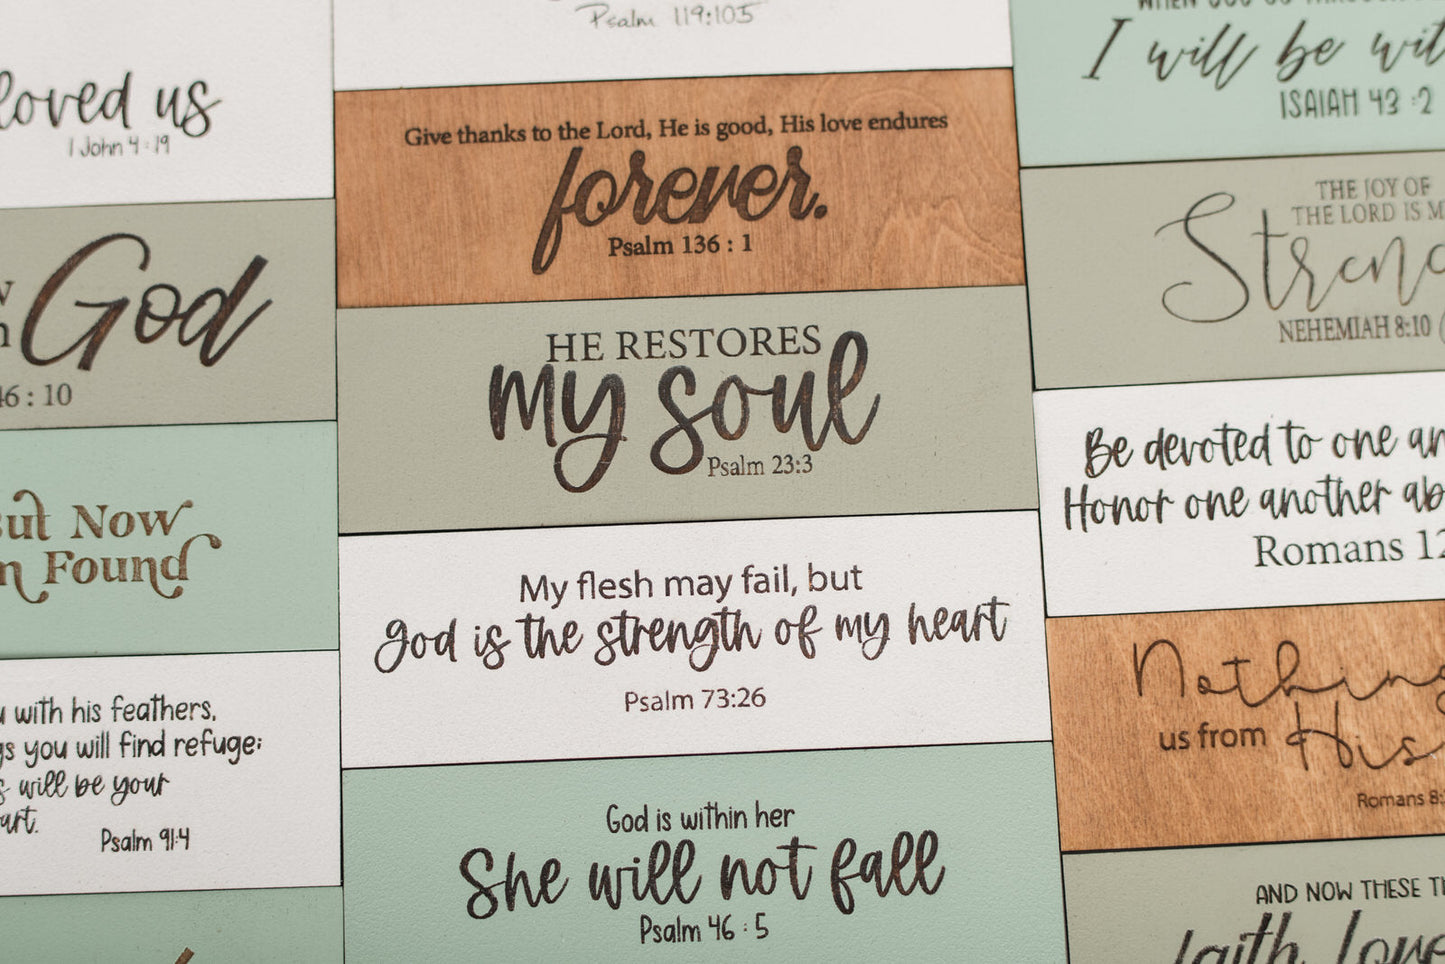 loved us
1 John 4:19
God
46 : 10
But Now
Found
with his feathers,
you will find refuge;
will be your
Psalm 91:4
Psalm 119:105
Give thanks to the Lord, He is good, His love endures
forever.
Psalm 136 : 1
HE RESTORES
my soul
Psalm 23:3
My flesh may fail, but
god is the strength of my heart
Psalm 73:26
God is within her
She will not fall
Psalm 46 : 5
I will be
ISAIAH 43 :2
THE JOY OF
THE LORD IS
NEHEMIAH 8:10
Be devoted to one
Honor one another
Romans
Nothing
us from His
Romans 8:
AND NOW THESE
faith love